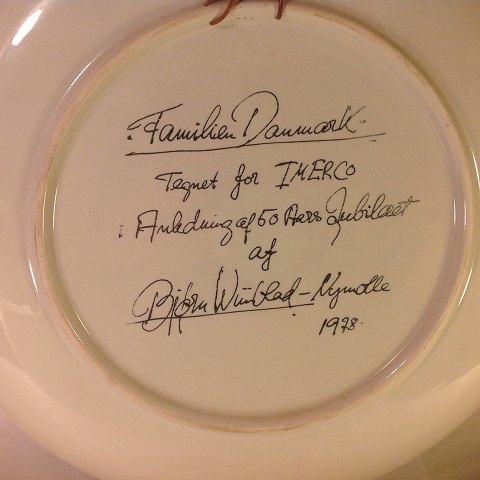 "Familien Danmark"
Tegnet for IMERCO
i Anledning af 50 Aars Jubilæet
af
Bjørn Wiinblad - Nymølle
1978.